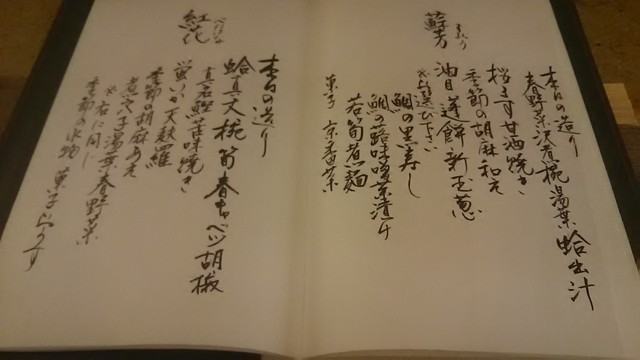 蘇芳
すおう
本日の造り
春野菜沢煮椀 湯葉 蛤出汁
桜ます甘酒焼き
季節の胡麻和え
油目 蓮餅 新玉葱
※お選び下さい
鯛の黒寿し
鯛の蕗味噌茶漬け
若筍煮麺
菓子 京番茶
紅花
べにばな
本日の造り
蛤真丈椀 筍 春キャベツ 胡椒
真名鰹 蕗味噌焼き
蛍いか天麩羅
季節の胡麻和え
煮穴子 湯葉 春野菜
※右に同じ
季節の水物 菓子 お薄